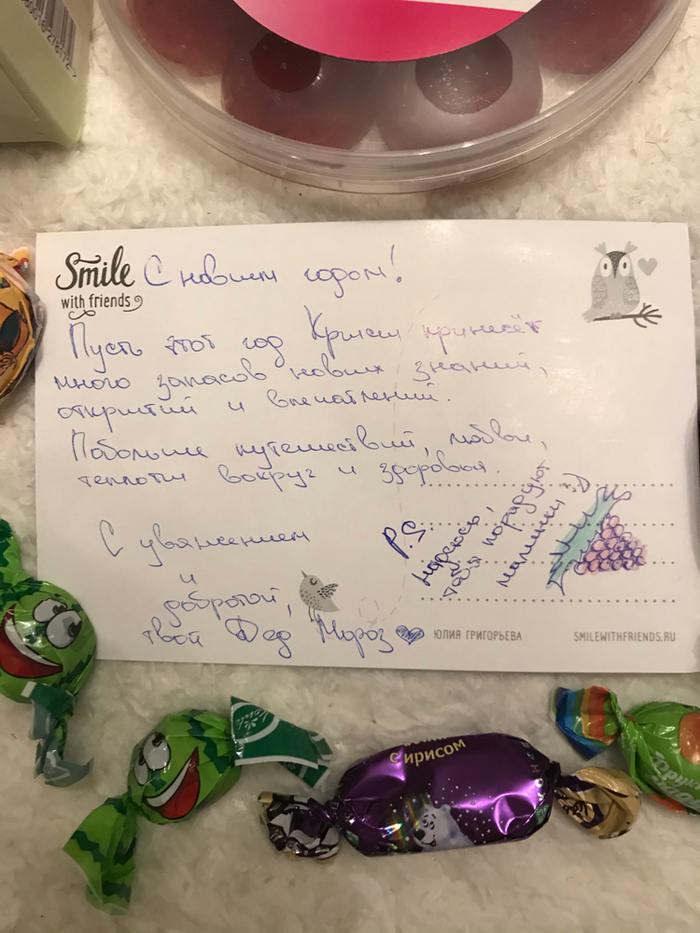 Smile
with friends
С новым годом!
Пусть этот год Крысы принесёт
много запасов новых знаний,
открытий и впечатлений.
Побольше путешествий, любви,
теплоты вокруг и здоровья.
С уважением
и
добротой,
твой Дед Мороз
P.S
надеюсь,
тебя порадуют
малинки :)
ЮЛИЯ ГРИГОРЬЕВА
SMILEWITHFRIENDS.RU
с ирисом